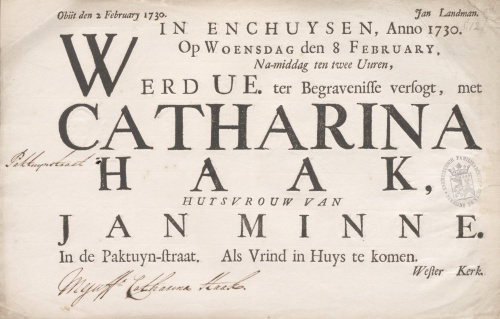 Obiit den 2 February 1730. Jan Landman.
IN ENCHUYSEN, Anno 1730.
Op WOENSDAG den 8 FEBRUARY,
Na-middag ten twee Uuren,
WERD UE. ter Begravenisse versogt, met
CATHARINA
Paktuynstraat
HAAK,
HUYSVROUW VAN
JAN MINNE.
In de Paktuyn-straat. Als Vrind in Huys te komen.
Wester Kerk.
Mejuffr Catharina Haak